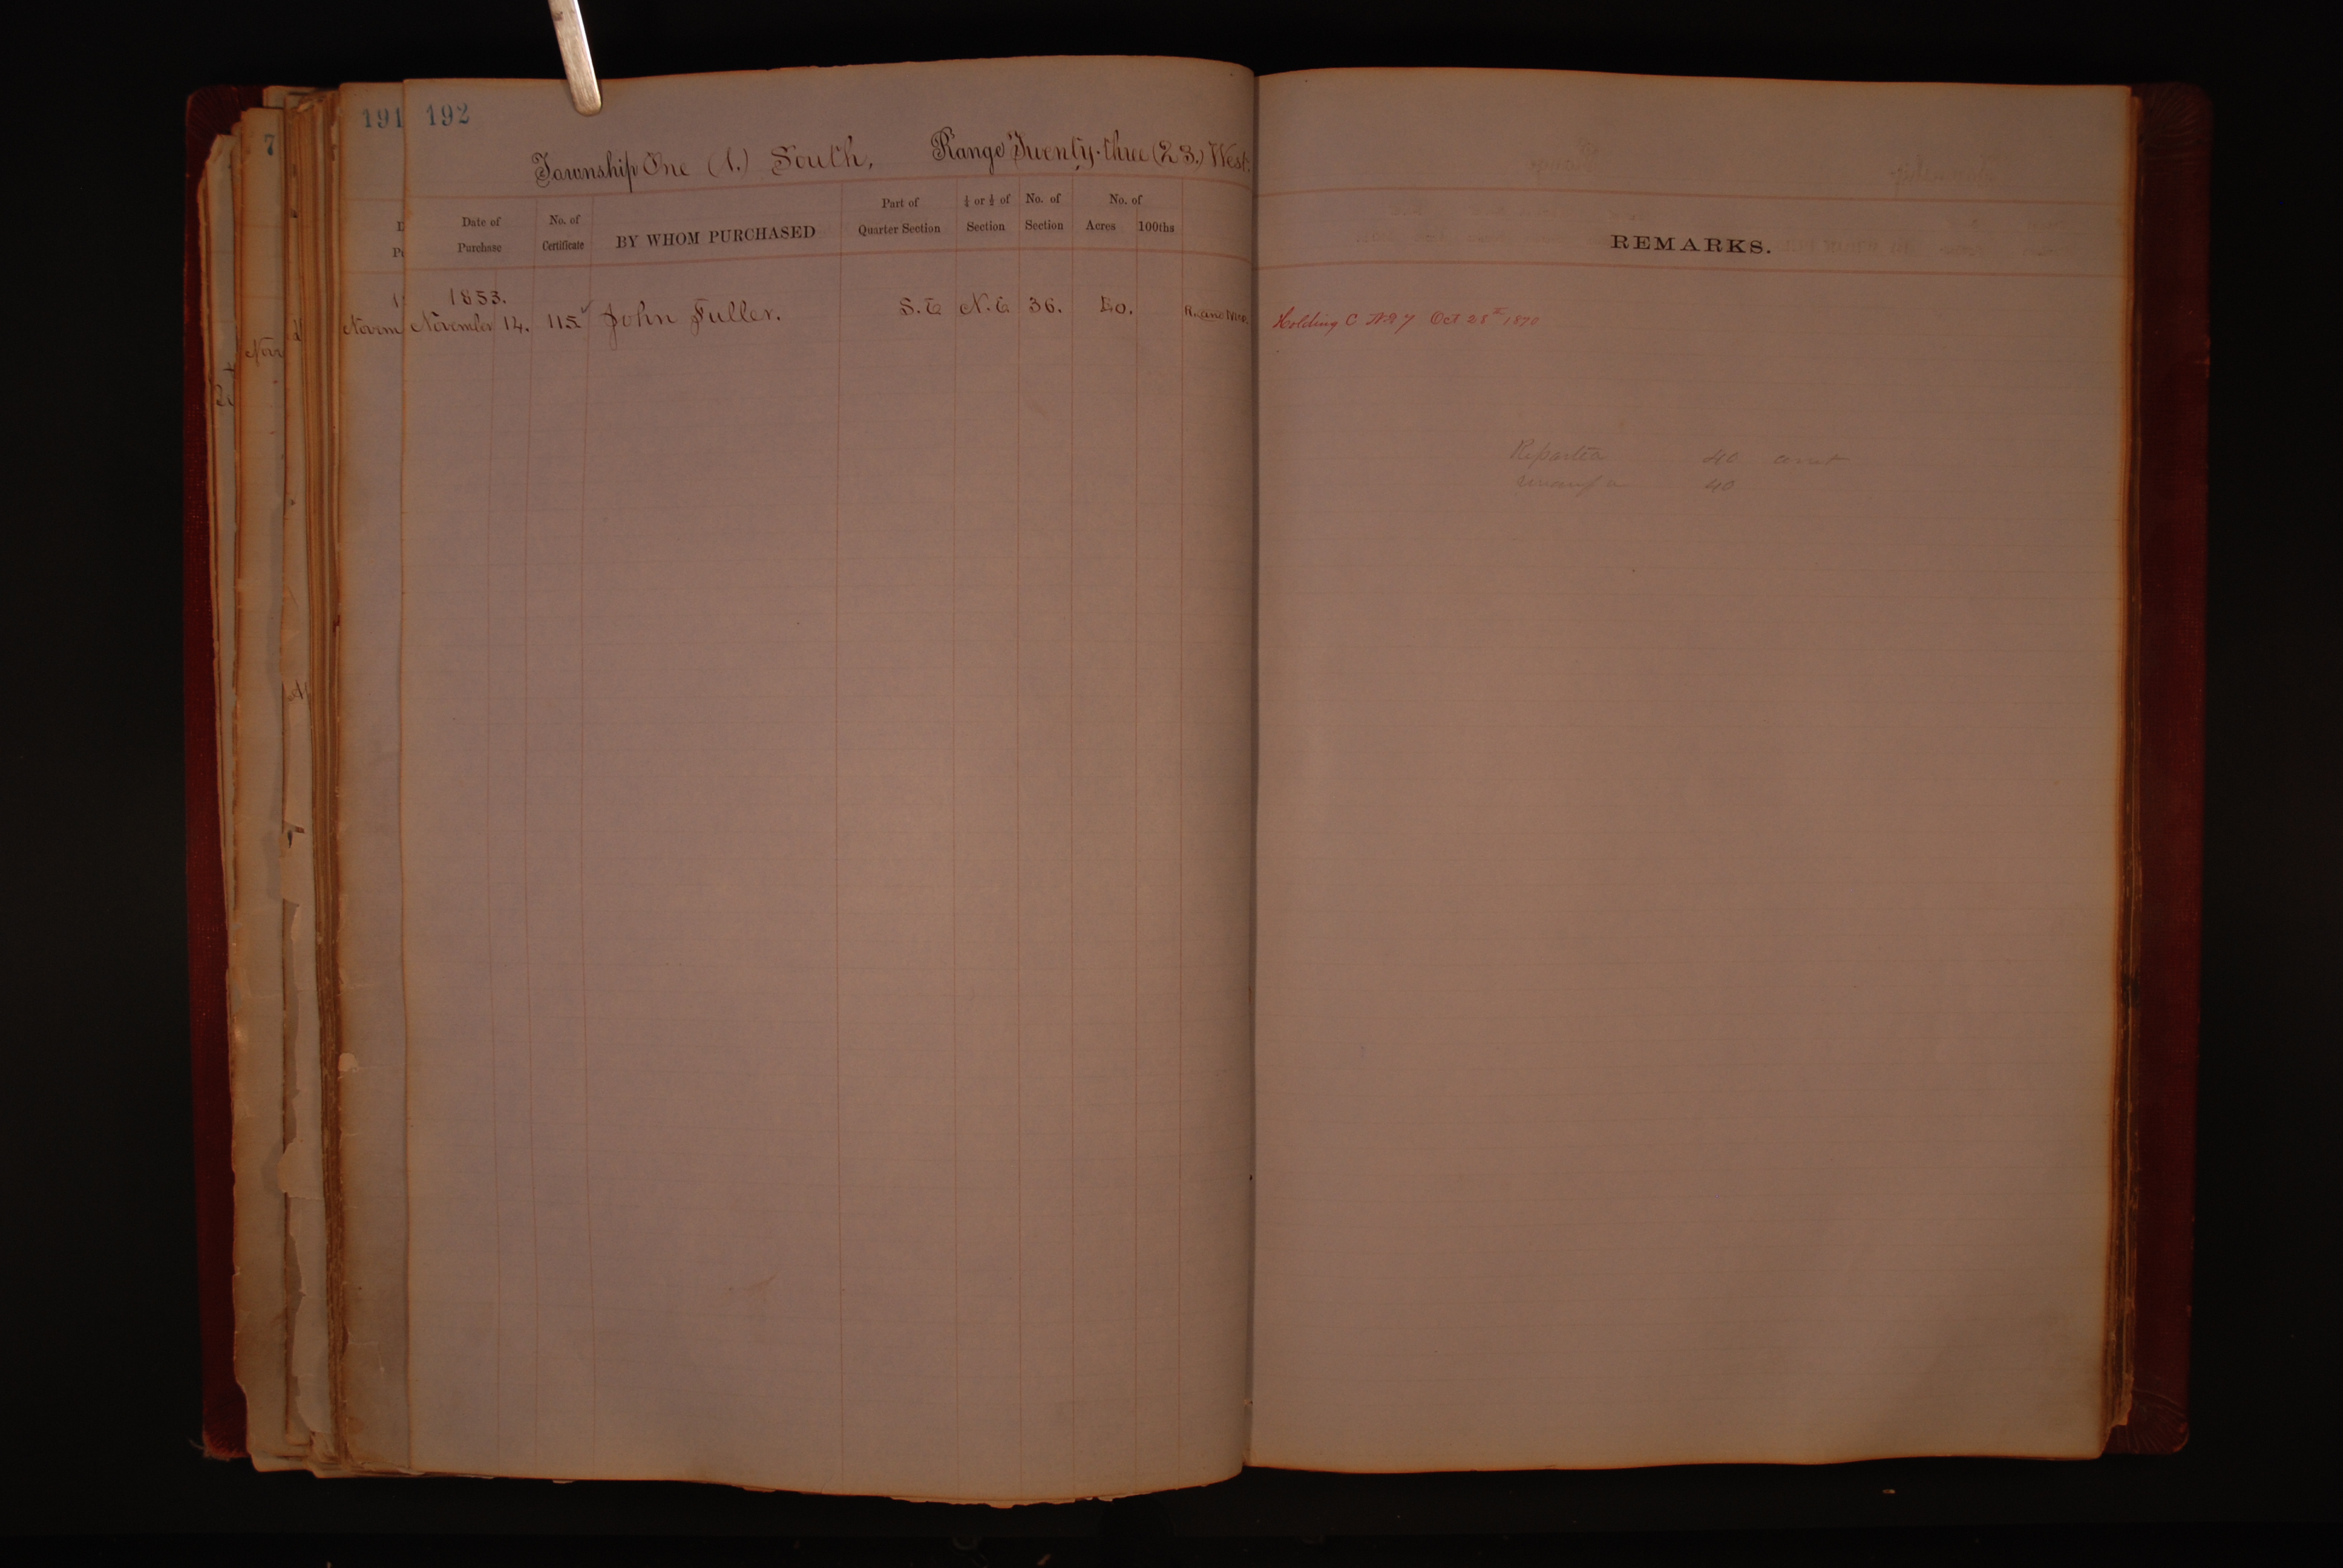 191 192
7
Township One (1.) South, Range Twenty-three (23.) West.
Date of Purchase
No. of Certificate
BY WHOM PURCHASED
Part of Quarter Section
¼ or ½ of Section
No. of Section
No. of Acres 100ths
REMARKS.
1853.
November 14. 115 John Fuller. S.E N.E 36. 40.
Holding C Oct 28th 1870
40
40